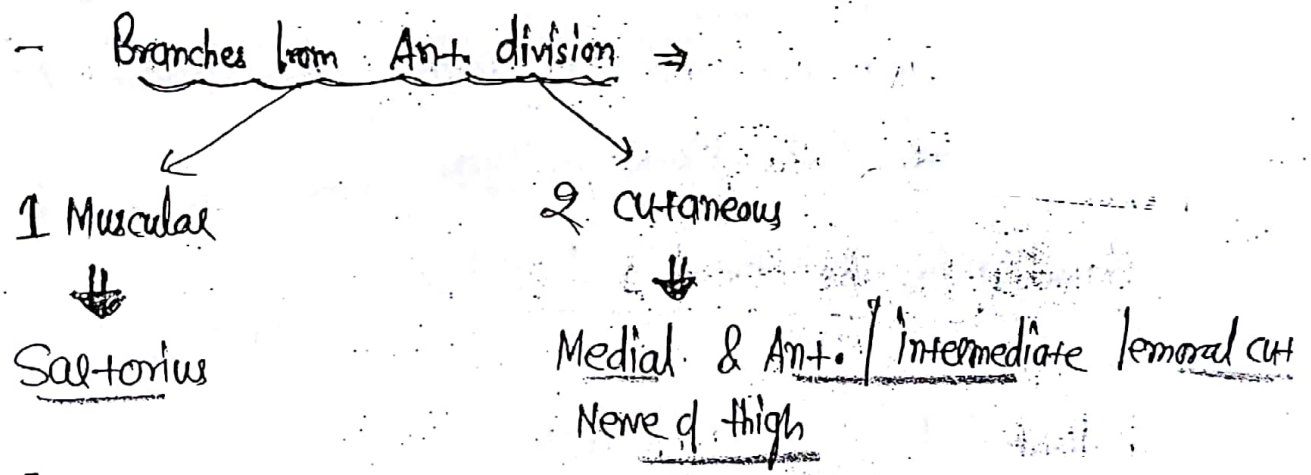 - Branches from Ant. division ⇒
1 Muscular 2 cutaneous
⇓ ⇓
Sartorius Medial & Ant. / intermediate femoral cut
Nerve of thigh